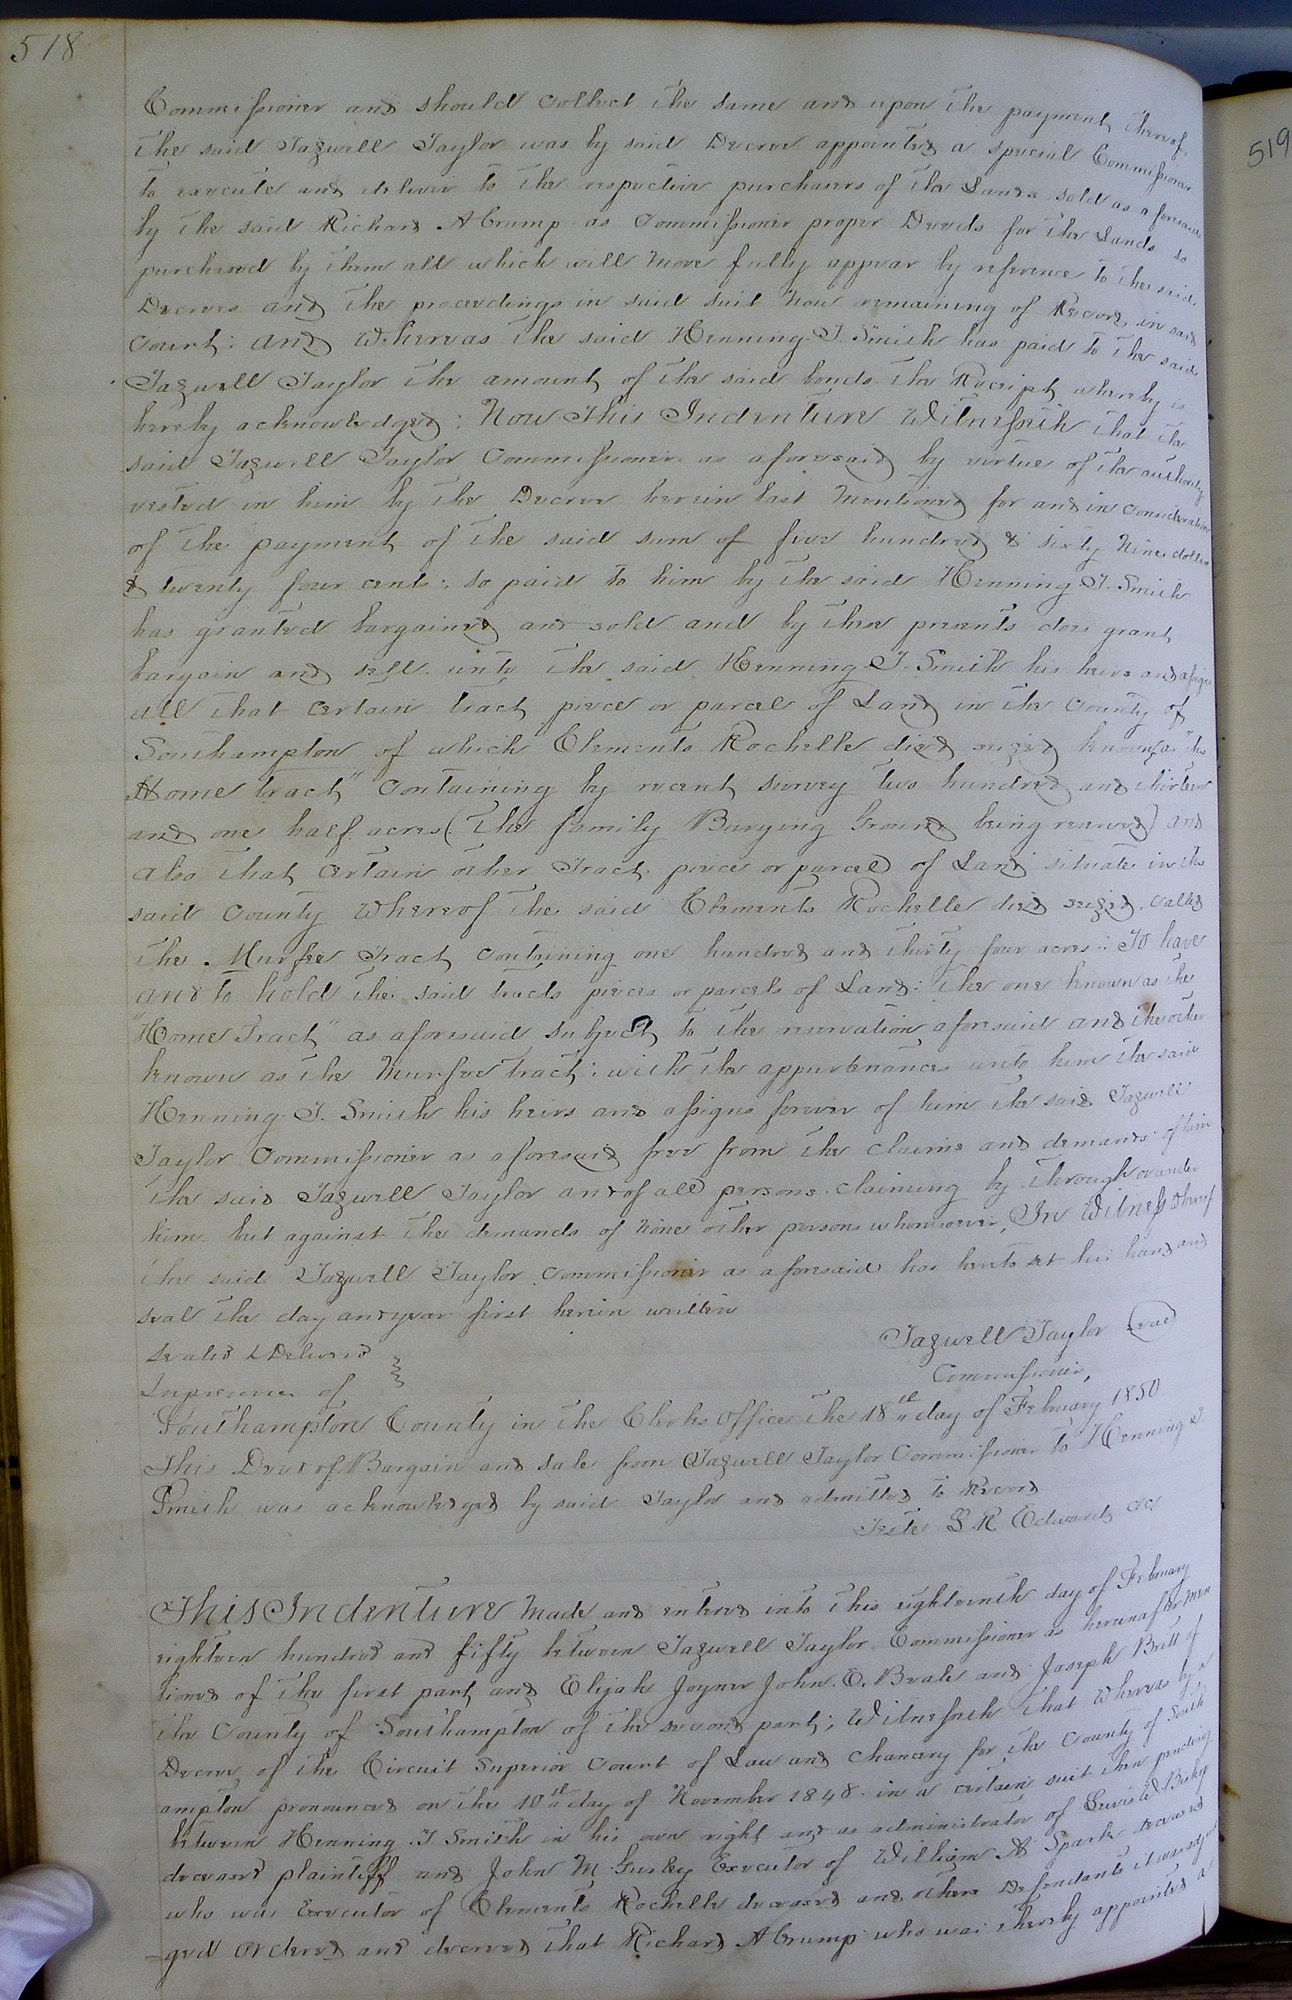 518
519
Commissioner and should collect the same and upon the payment thereof
the said Tazwell Taylor was by said Decree appointed a special Commissioner
to execute and deliver to the respective purchasers of the Lands sold as aforesaid
by the said Richard A Crump as Commissioner proper Deeds for the Lands so
purchased by them all which will more fully appear by reference to the said
Decrees and the proceedings in said suit now remaining of Record in said
Court: and Whereas the said Henning T. Smith has paid to the said
Tazwell Taylor the amount of the said bonds the Receipt whereby is
hereby acknowledged: Now This Indenture Witnesseth that the
said Tazwell Taylor Commissioner as aforesaid by virtue of the authority
vested in him by the Decree herein last mentioned for and in consideration
of the payment of the said sum of five hundred & sixty Nine dollars
& twenty four cents: so paid to him by the said Henning T. Smith
has granted bargained and sold and by these presents does grant
bargain and sell unto the said Henning T. Smith his heirs and assigns
all that certain tract piece or parcel of Land in the County of
Southampton of which Clements Rochelle died seized known as "the
Home tract" containing by recent survey two hundred and thirteen
and one half acres (the family Burying Ground being reserved) and
also that certain other Tract piece or parcel of Land situate in the
said County Whereof the said Clements Rochelle died seized, called
the Murfee Tract containing one hundred and thirty four acres:: To have
and to hold the said tracts pieces or parcels of Land: the one known as the
"Home Tract" as aforesaid subject to the reservation aforesaid and the other
known as the Murfee tract: with the appurtenances unto him the said
Henning T. Smith his heirs and assigns forever of him the said Tazwell
Taylor Commissioner as aforesaid free from the claims and demands of him
the said Tazwell Taylor and of all persons claiming by through or under
him but against the demands of none other persons whomsoever, In Witness Whereof
the said Tazwell Taylor Commissioner as aforesaid has hereto set his hand and
seal the day and year first herein written
Sealed & Delivered
Tazwell Taylor (seal)
In presence of
Commissioner,
Southampton County in the Clerks Office the 18th day of February 1850
This Deed of Bargain and sale from Tazwell Taylor Commissioner to Henning T.
Smith was acknowledged by said Taylor and admitted to Record
Teste L R Edwards CC
This Indenture Made and entered into this eighteenth day of February
eighteen hundred and fifty between Tazwell Taylor Commissioner as hereinafter men
tioned of the first part and Elijah Joyner John. E. Beale and Joseph Britt of
the County of Southampton of the second part; Witnesseth that Whereas by a
Decree of the Circuit Superior Court of Law and Chancery for the County of South
ampton pronounced on the 10th day of November 1848 in a certain suit then pending
between Henning T Smith in his own right and as administrator of Lewis
deceased plaintiff and John M Gurley Executor of William A Spark deceased
who was Executor of Clements Rochelle deceased and others Defendants it was adjud
=ged ordered and decreed that Richard A Crump who was thereby appointed a